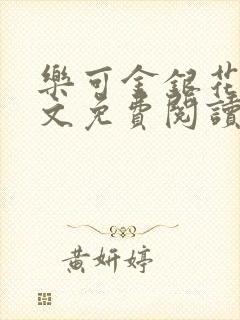 樂可金銀花
文免費閱讀
黃妍婷